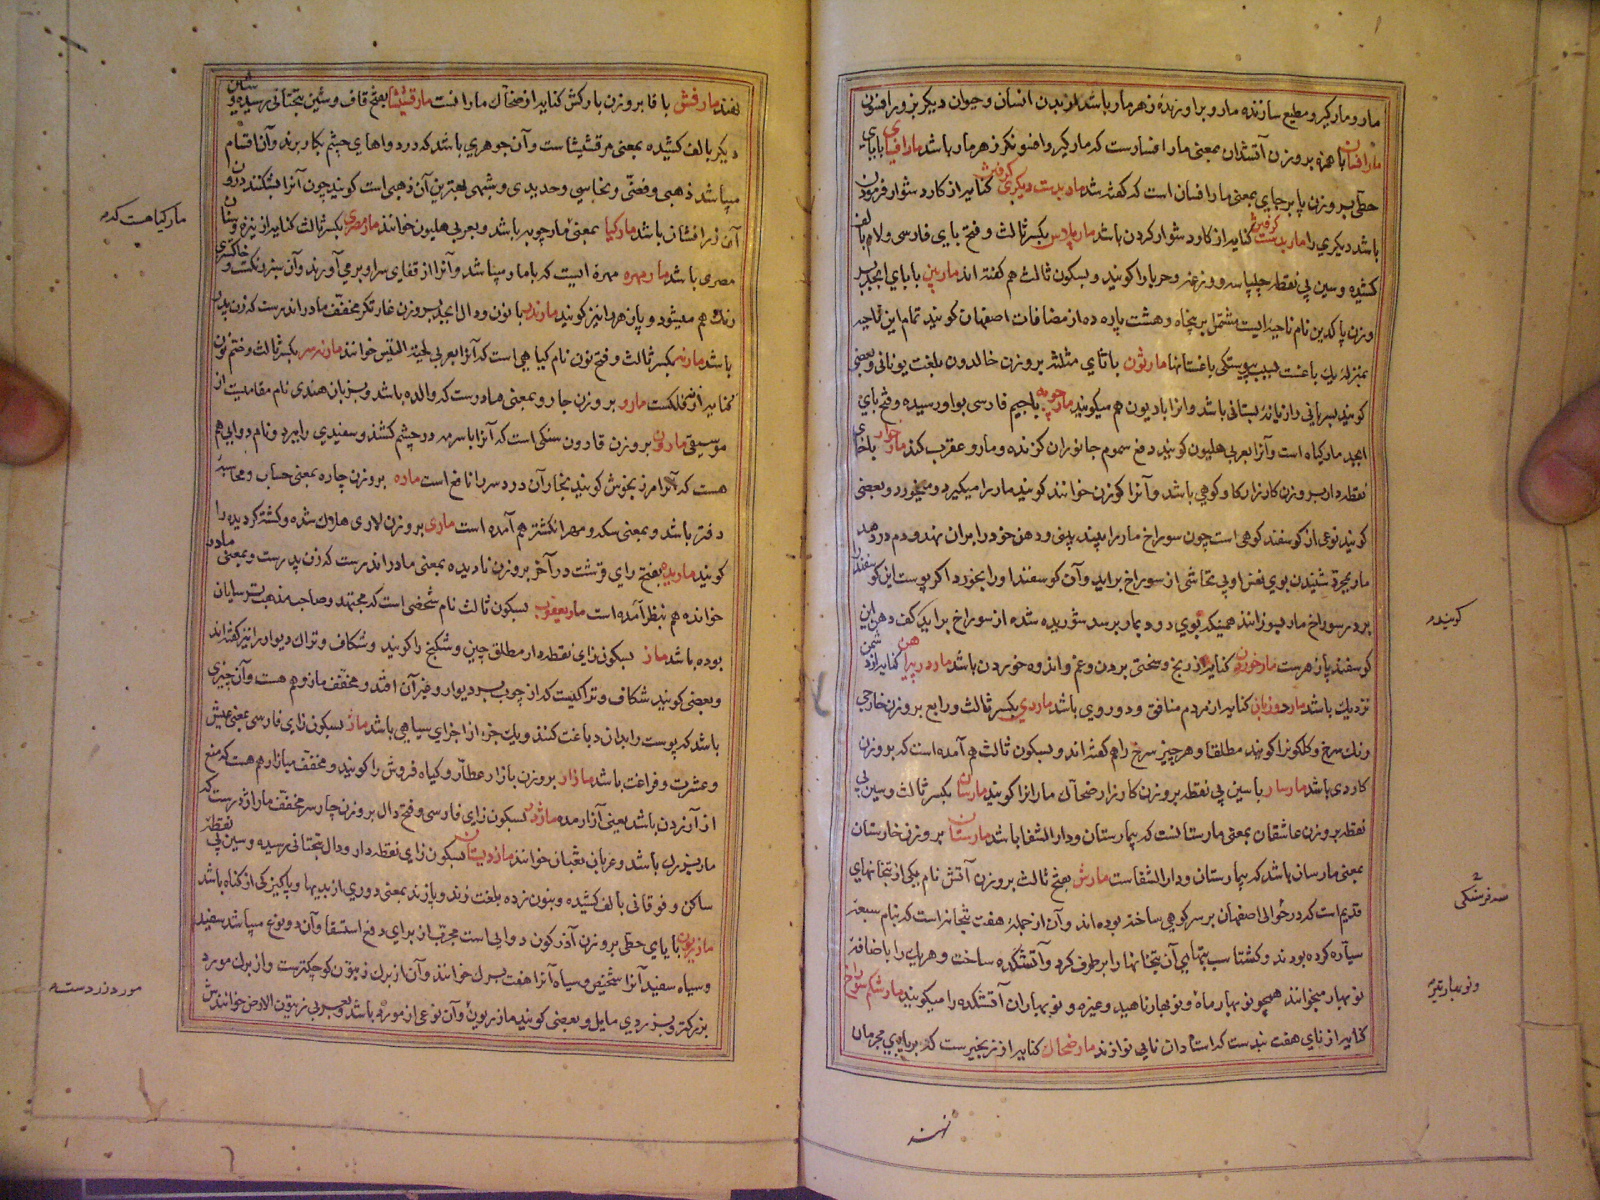 مار و مارگیر و مطیع سازنده مار و برآورنده زهر مار باشد از بدن انسان و حیوان دیگر بزور افسون
مارافسان با همزه بروزن آتشدان بمعنی مارافسارست که مارگیر و افسونگر زهر مار باشد مارافسای بایای
حطی بروزن پابرجای بمعنی مارافسان است که گفته شد مار بدست دیگری گرفتن کنایه از کار دشوار فرمودن
باشد دیگری را مار بدست گرفتن کنایه از کار دشوار کردن باشد مارپلاس بکسر ثالث و فتح بای فارسی و لام بالف
کشیده و سین بی نقطه چلپاسه و وزغه و حربا را گویند و بسکون ثالث هم گفته اند ماربین با بای ابجد بر
وزن پاکدین نام ناحیه ایست مشتمل بر پنجاه و هشت پاره ده از مضافات اصفهان گویند تمام این ناحیه
بمنزلهٔ یک باغست بسبب پیوستگی باغستانها مارثون با ثای مثلثه بروزن خالدون بلغت یونانی و بعضی
گویند بسریانی رازیانهٔ بستانی باشد و انرا بادیون هم میگویند مارچوبه با جیم فارسی بواو رسیده و فتح بای
ابجد مارگیاه است و آنرا بعربی هلیون گویند دفع سموم جانوران گزنده و مار و عقرب کند مارخوار با خای
نقطه دار بروزن کارزار گاو کوهی باشد و آنرا گوزن خوانند گویند مار را میگیرد و میخورد و بعضی
گویند نوعی از گوسفند کوهی است چون سوراخ مار را بیند بینی و دهن خود را بران نهد و دم دردهد
مار بمجرد شنیدن بوی نفس او بی تحاشی از سوراخ براید و آن گوسفند او را بخورد اگر پوست این گوسفند را
بر در سوراخ مار بسوزانند همینکه بوی دود بمار برسد شوریده شده از سوراخ براید کف دهن این
گوسفند پازهرست مار خوردن کنایه از رنج و سختی بردن و غم و اندوه خوردن باشد مار در پیراهن کنایه از دشمن
نزدیک باشد مار دوزبان کنایه از مردم منافق و دوروی باشد ماردی بکسر ثالث و رابع بروزن خارجی
رنگ سرخ و گلگون را گویند مطلقا و هر چیز سرخ را هم گفته اند و بسکون ثالث هم آمده است که بروزن
کاردی باشد مارسار با سین بی نقطه بروزن کارزار ضحاک ماران را گویند مارسان بکسر ثالث و سین بی
نقطه بروزن عاشقان بمعنی مارستانست که بیمارستان و دارالشفا باشد مارستان بروزن خارستان
بمعنی مارسان باشد که بیمارستان و دارالشفاست مارش بفتح ثالث بروزن آتش نام یکی از بتخانهای
قدیم است که در حوالی اصفهان بر سر کوهی ساخته بوده اند و آن از جملهٔ هفت بتخانه است که بنام سبعهٔ
سیاره کرده بودند و گشتاسب بتهای آن بتخانها را برطرف کرد و آتشکده ساخت و هر یک را با ضافهٔ
نوبهار میخوانند همچو نوبهار ماه و نوبهار ناهید و غیره و نوبهاران آتشکده را میگویند مار شکم سوراخ
کنایه از نای هفت بندست که استادان نایی نوازند مار ضحاک کنایه از زنجیرست که بر پای مجرمان
نهند
گویند
سه فرسنگی
و نوبهار تیر
نهند مارفش با فا بروزن بارکش کنایه از ضحاک مارانست مارقشیشا بفتح قاف و شین بتحتانی رسیده و شین
دیگر بالف کشیده بمعنی مرقشیشاست و آن جوهری باشد که در دواهای چشم بکار برند و آن اقسام
میباشد ذهبی و فضی و نحاسی و حدیدی و شبهی بهترین آن ذهبی است گویند چون آنرا بشکنند درون
آن زرافشان باشد مارگیا بمعنی مارچوبه باشد و بعربی هلیون خوانند مار مصری بکسر ثالث کنایه از نیزه و سنان
مصری باشد مار مهره مهرهٔ ایست که با مار میباشد و آنرا از قفای سر او برمی آورند و آن سبز رنگست و خاکستری
رنگ هم میشود و پازهر دانیز گویند مارندر با نون و دال ابجد بروزن غارتگر مخفف مادر اندرست که زن پدر
باشد مارنه بکسر ثالث و فتح نون نام گیاهی است که آنرا بعربی لحیة التیس خوانند مار نه سر بکسر ثالث و ختم نون
کنایه از فلکست مارو بروزن جارو بمعنی مادرست که والده باشد و بزبان هندی نام مقامیست از
موسیقی مارون بروزن قارون سنگی است که آنرا با سرمه در چشم کشند و سفیدی را ببرد و نام دوایی هم
هست که آنرا مرزنجوش گویند بخار آن درد سر را نافع است ماره بروزن چاره بمعنی حساب و محاسبهٔ
دفتر باشد و بمعنی سکه و مهر انگشتر هم آمده است ماری بروزن لاری هلاک شده و کشته گردیده را
گویند ماریره بفتح رای قرشت در آخر بروزن نادیده بمعنی مادر اندرست که زن پدرست و بمعنی مادر
خوانده هم بنظر آمده است ماریعقوب بسکون ثالث نام شخصی است که مجتهد و صاحب مذهب ترسایان
بوده باشد ماز بسکون زای نقطه دار مطلق چین و شکنج را گویند و شکاف و تراک دیوار را نیز گفته اند
و بعضی گویند شکاف و تراکیست که از چوب بر دیوار و غیر آن افتد و مخفف مازو هم هست و آن چیزی
باشد که پوست را بدان دباغت کنند و یک جزء از اجزای سیاهی باشد ماژ بسکون زای فارسی بمعنی عیش
و عشرت و فراغت باشد مازار بروزن بازار عطار و گیاه فروش را گویند و مخفف میازار هم هست که منع
از آزردن باشد یعنی آزار مده ماژدر بسکون زای فارسی و فتح دال بروزن چارسر مخفف مار اژدرست که
مار بزرگ باشد و عربان ثعبان خوانند مازدیستان بسکون زای نقطه دار و دال بتحتانی رسیده و سین بی نقطهٔ
ساکن و فوقانی بالف کشیده و بنون زده بلغت زند و پازند بمعنی دوری از بدیها و پاکیزگی از گناه باشد
مازریون بایای حطی بروزن آذرگون دوایی است مجرب از برای دفع استسقا و آن دو نوع میباشد سفید
و سیاه سفید آنرا اشخیص و سیاه آنرا هفت برگ خوانند و آن از برگ زیتون کوچکترست و از برگ مورد
بزرگتر و بزردی مایل و بعضی گویند مازریون و آن نوعی از مورد باشد و بعربی زیتون الارض خوانندش
مارگیا هست که
مورد زردست